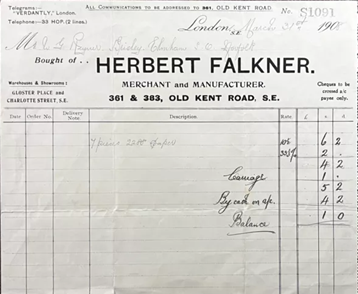 Telegrams:— ALL COMMUNICATIONS TO BE ADDRESSED TO 361, OLD KENT ROAD. No. S1091
"VERDANTLY," London.
Telephone:— 33 HOP. (2 lines.)
London, S.E. March 31st 1908
Bought of . .
HERBERT FALKNER.
Warehouse & Showrooms:
GLOSTER PLACE and
CHARLOTTE STREET, S.E.
MERCHANT and MANUFACTURER.
361 & 363, OLD KENT ROAD, S.E.
Cheques to be
crossed a/c
payee only.
Date Order No. Delivery Note Description. Rate £ s d
6 2
2 -
4 2
Carriage 1 -
5 2
By cash on a/c. 4 2
Balance 1 0